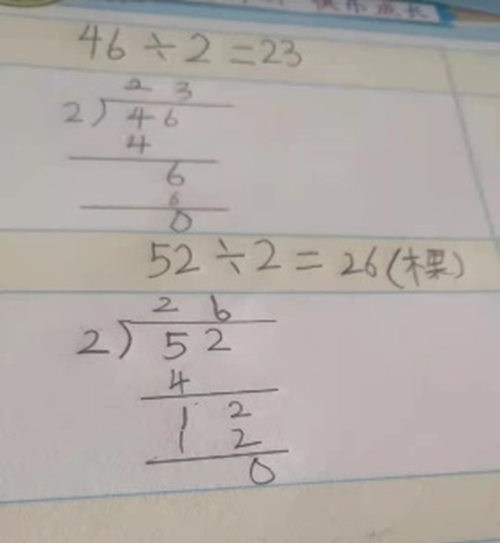 快乐成长
46÷2=23
23
2)46
4
6
6
0
52÷2=26(棵)
26
2)52
4
12
12
0